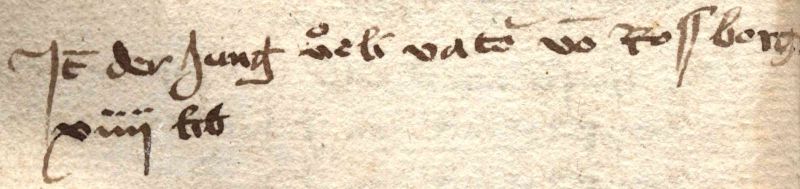 Jt̄ der Jung vͦeli vatō vō Rossberg
xiiij